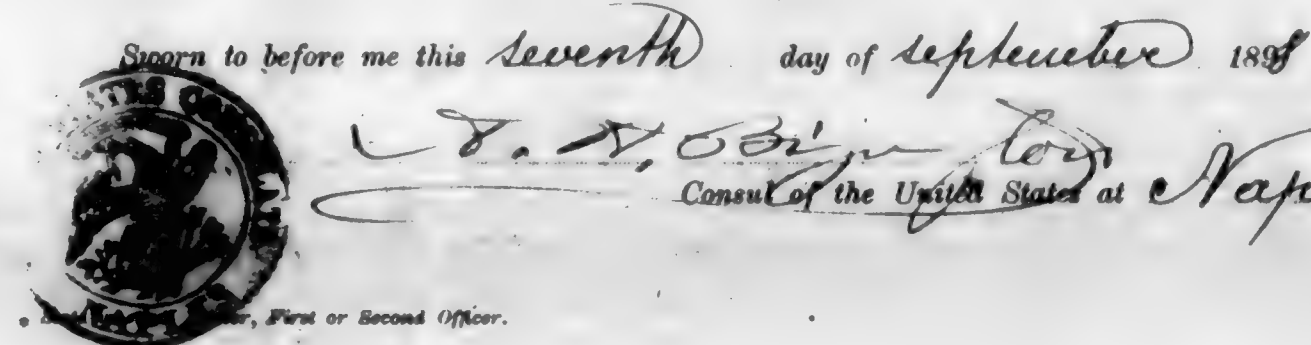 Sworn to before me this seventh day of september 1898
Consul of the United States at Nap
ATES CON
, First or Second Officer.